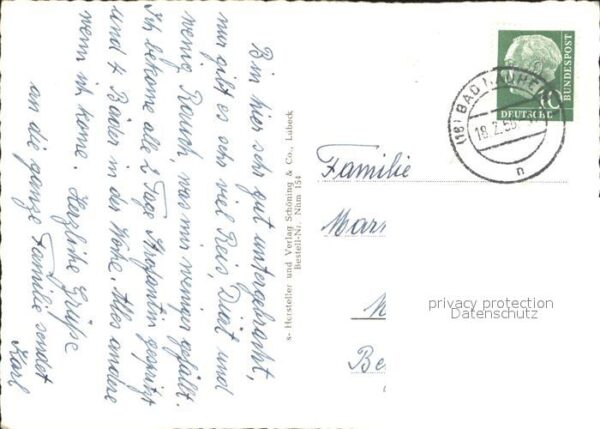 Bin hier sehr gut untergebracht,
nur gibt es sehr viel Reis, Diät und
wenig Rauch, was mir weniger gefällt.
Ich bekome alle 2 Tage Strofantin gespritzt
und 4 Bäder in der Woche. Alles andere
wenn ich kome. Herzliche Grüße
an die ganze Familie sendet
Karl
s- Hersteller und Verlag Schöning & Co., Lübeck
Bestell-Nr. Nhm 154
DEUTSCHE
BUNDESPOST
10
(16) BAD NAUHEIM
18.2.55
n
Familie
Mar
M
Be
privacy protection
Datenschutz